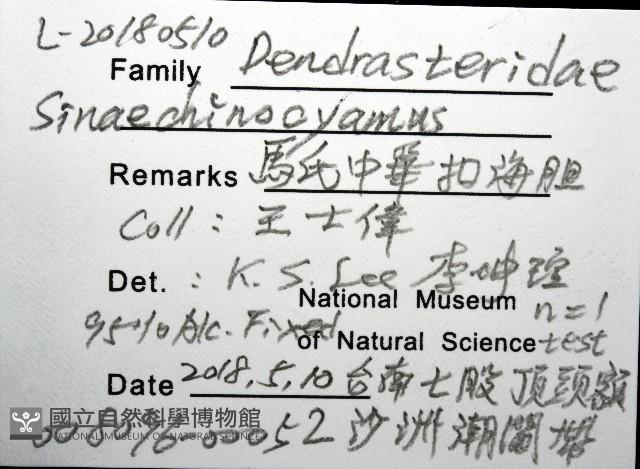 L-20180510
Family Dendrasteridae
Sinaechinocyamus
Remarks 馬氏中華扣海胆
Coll : 王士偉
Det. : K. S. Lee 李坤瑄
National Museum n=1
95% Alc. Fixed of Natural Science test
Date 2018.5.10 台南七股頂頭額
沙洲潮間帶
國立自然科學博物館
NATIONAL MUSEUM OF NATURAL SCIENCE